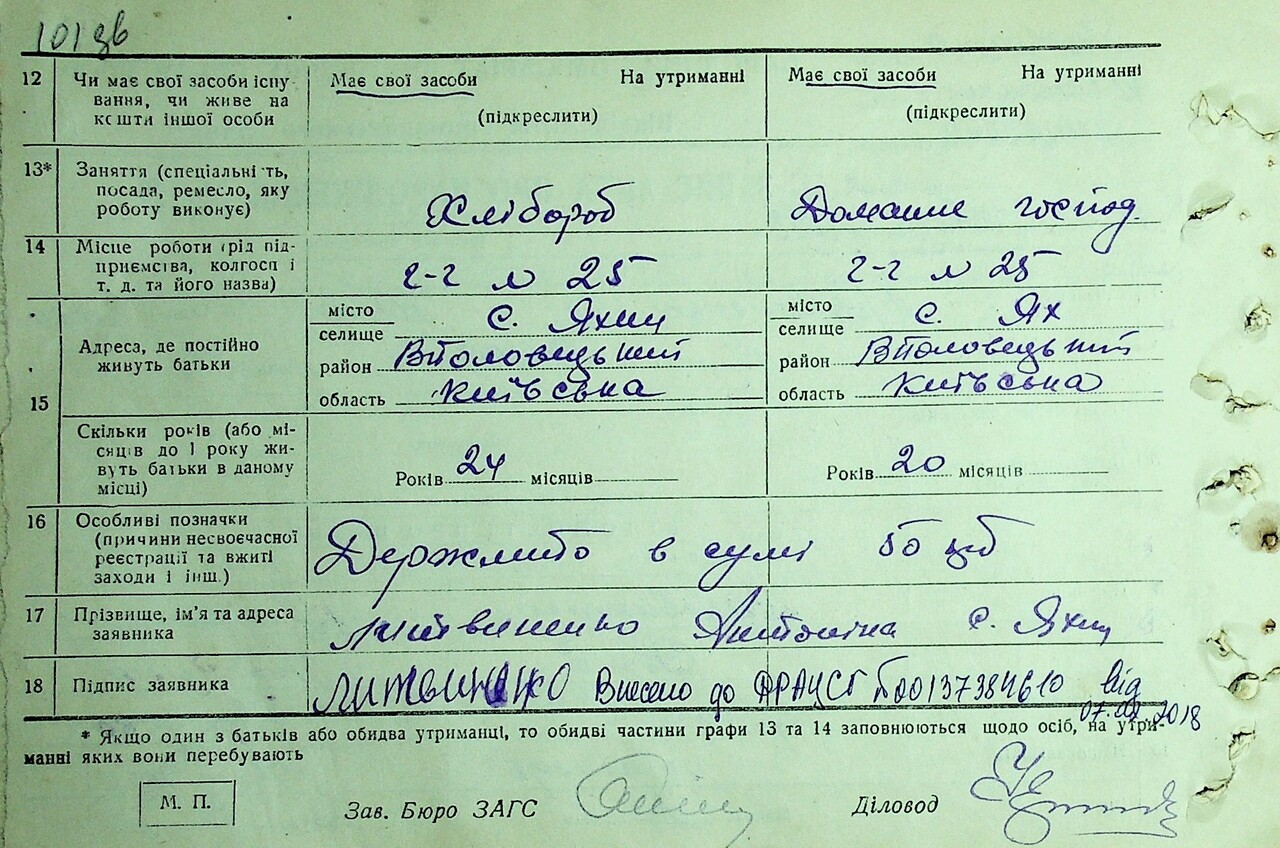 101 зв
12 Чи має свої засоби існування, чи живе на кошти іншої особи Має свої засоби На утриманні (підкреслити) Має свої засоби На утриманні (підкреслити)
13* Заняття (спеціальність, посада, ремесло, яку роботу виконує) Хлібороб Домашнє господ.
14 Місце роботи (рід підприємства, колгосп і т. д. та його назва) г-г № 25 г-г № 25
15 Адреса, де постійно живуть батьки
місто селище с. Яхни місто селище с. Ях
район Вполовецький район Вполовецький
область Київська область Київська
Скільки років (або місяців до 1 року живуть батьки в даному місці) Років 24 місяців Років 20 місяців
16 Особливі позначки (причини несвоєчасної реєстрації та вжиті заходи і інш.) Держмито в сумі 50 крб
17 Прізвище, ім'я та адреса заявника Литвиненко Антоніна с. Яхни
18 Підпис заявника Литвиненко Внесено до ДРАЦСГ №00137384610 від
2018
* Якщо один з батьків або обидва утриманці, то обидві частини графи 13 та 14 заповнюються щодо осіб, на утри-
манні яких вони перебувають
М. П. Зав. Бюро ЗАГС Діловод